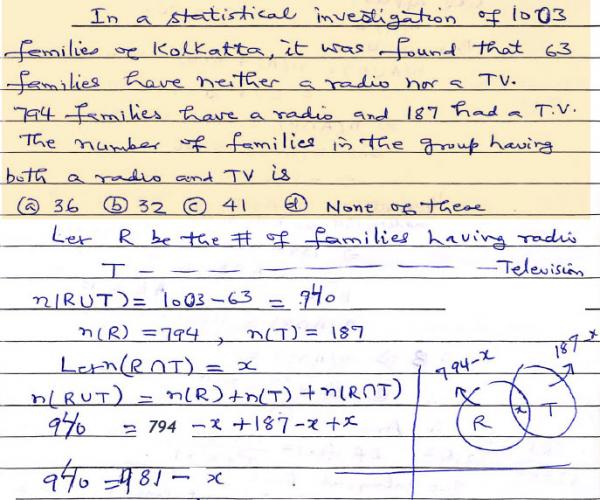 In a statistical investigation of 1003
families of Kolkatta, it was found that 63
families have neither a radio nor a TV.
794 families have a radio and 187 had a T.V.
The number of families in the group having
both a radio and TV is
(a) 36 (b) 32 (c) 41 (d) None of these
Let R be the # of families having radio
T — — — — — — — — Television
n(RUT) = 1003-63 = 940
n(R) = 794, n(T) = 187
Let n(R∩T) = x
n(RUT) = n(R)+n(T)+n(R∩T)
940 = 794 -x+187-x+x
940 = 981 - x
794-x
187-x
R x T